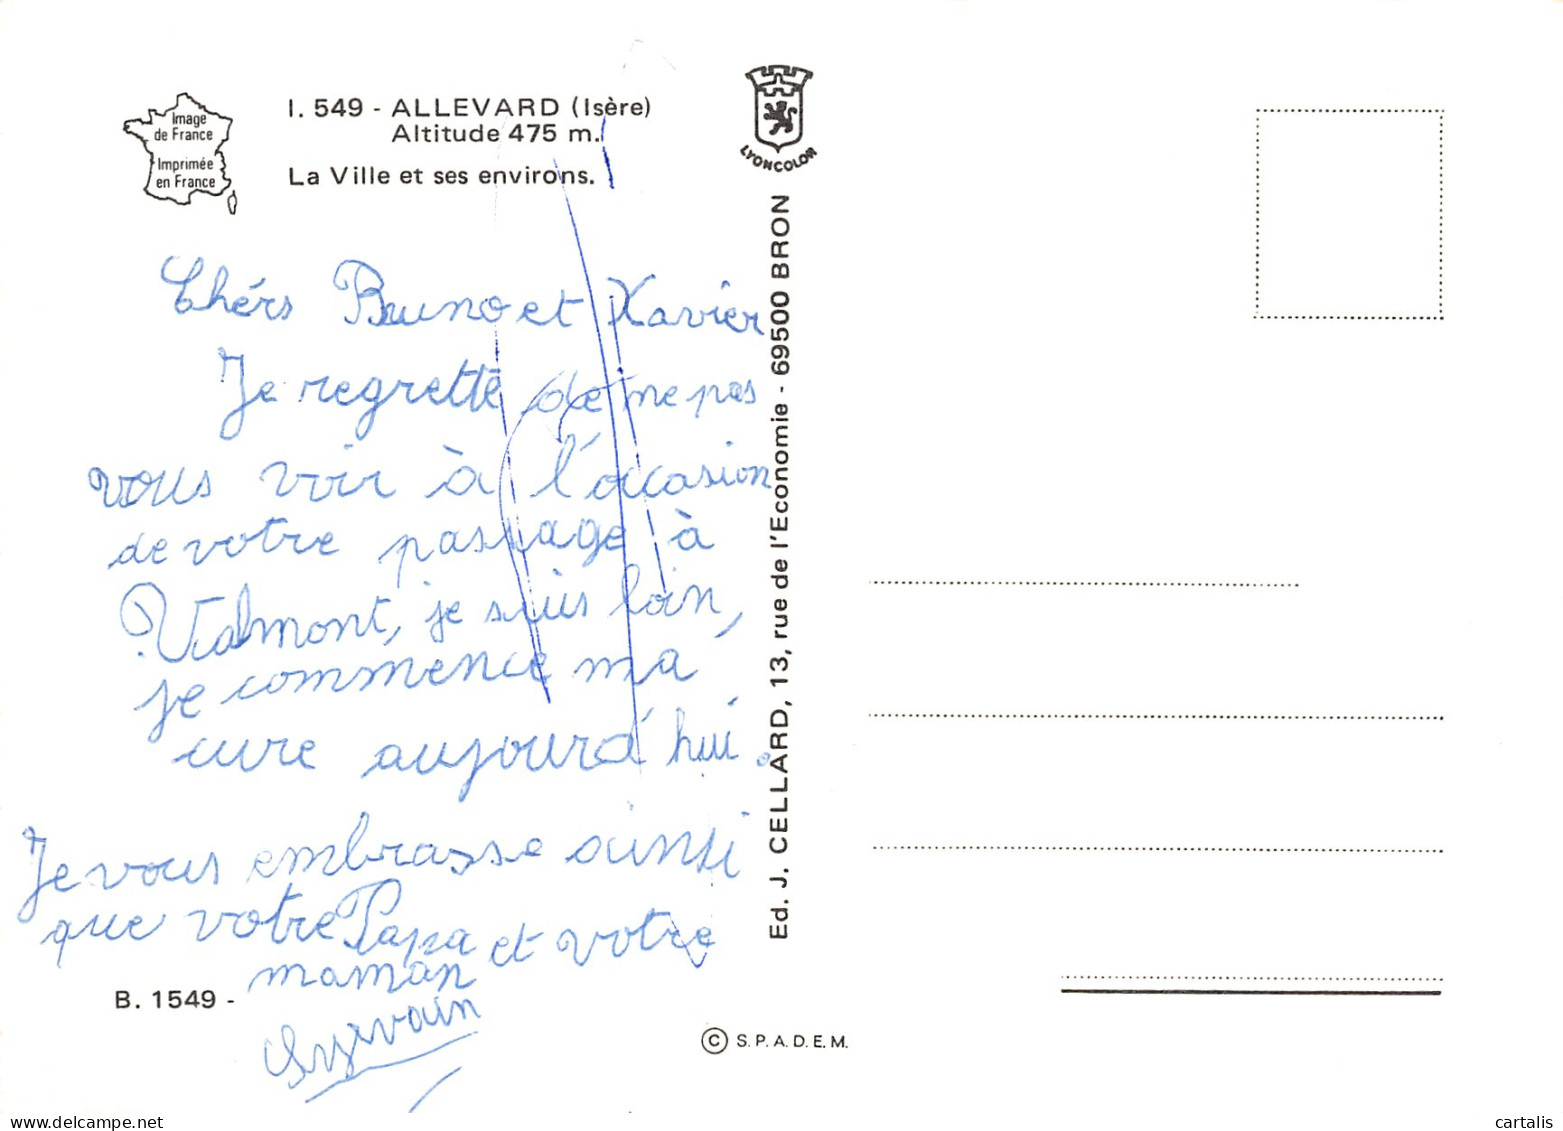 Image
de France
Imprimée
en France
I. 549 - ALLEVARD (Isère)
Altitude 475 m.
La Ville et ses environs.
LYONCOLOR
Chérs Bruno et Xavier
Je regrette de ne pas
vous voir à l'occasion
de votre passage à
Valmont, je suis loin,
je commence ma
cure aujourd'hui.
Je vous embrasse ainsi
que votre Papa et votre
maman
Sylvain
B. 1549 -
Ed. J. CELLARD, 13, rue de l'Economie - 69500 BRON
© S.P.A.D.E.M.
delcampe.net
cartalis